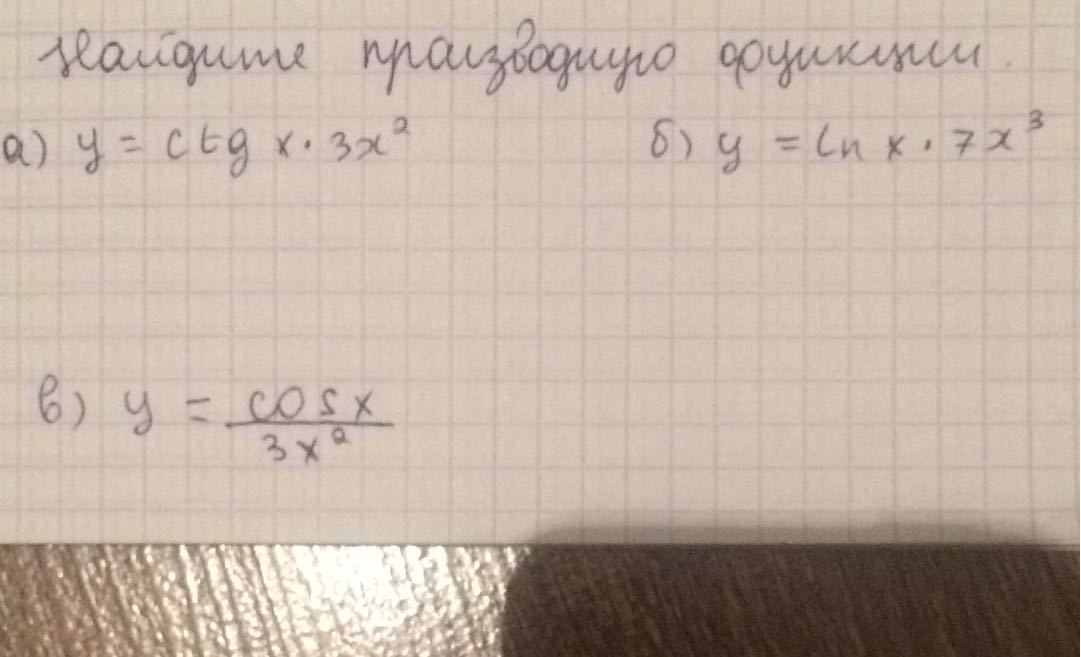 Найдите производную функции.
а) y = ctg x · 3x² б) y = ln x · 7x³
в) y = cos x / 3x²